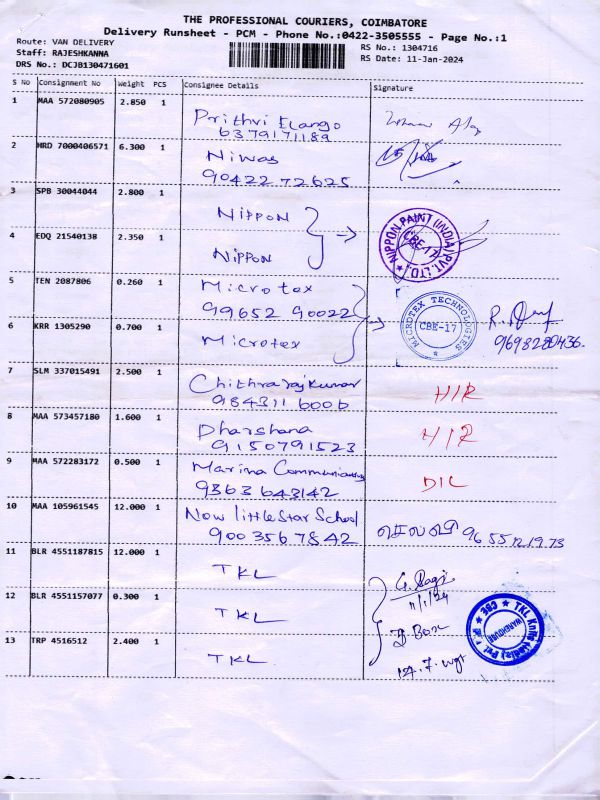 THE PROFESSIONAL COURIERS, COIMBATORE
Delivery Runsheet - PCM - Phone No.:0422-3505555 - Page No.:1
Route: VAN DELIVERY
Staff: RAJESHKANNA
DRS No.: DCJB130471601
RS No.: 1304716
RS Date: 11-Jan-2024
S No Consignment No Weight PCS Consignee Details Signature
1 MAA 572080905 2.850 1
Prithvi Elango
6379171189
2 HRD 7000406571 6.300 1
Niwas
90422 72625
3 SPB 30044044 2.800 1
NIPPON
NIPPON PAINT (INDIA) PVT. LTD.
CBE-17
4 EDQ 21540138 2.350 1
NIPPON
5 TEN 2087806 0.260 1
Microtex
99652 90022
MICROTEX TECHNOLOGIES
CBE-17
9698280436.
6 KRR 1305290 0.700 1
Microtex
7 SLM 337015491 2.500 1
Chithrarajkumar
984311 6006
H/R
8 MAA 573457180 1.600 1
Dharshana
9150791523
H/R
9 MAA 572283172 0.500 1
Marina
9363643142
D/L
10 MAA 105961545 12.000 1
Now little Star School
900 356 7842
96 55 12 19 73
11 BLR 4551187815 12.000 1
TKL
11/1/24
12 BLR 4551157077 0.300 1
TKL
B. Box
TKL Knits (India) Pvt
CBE
WAREHOUSE
13 TRP 4516512 2.400 1
TKL